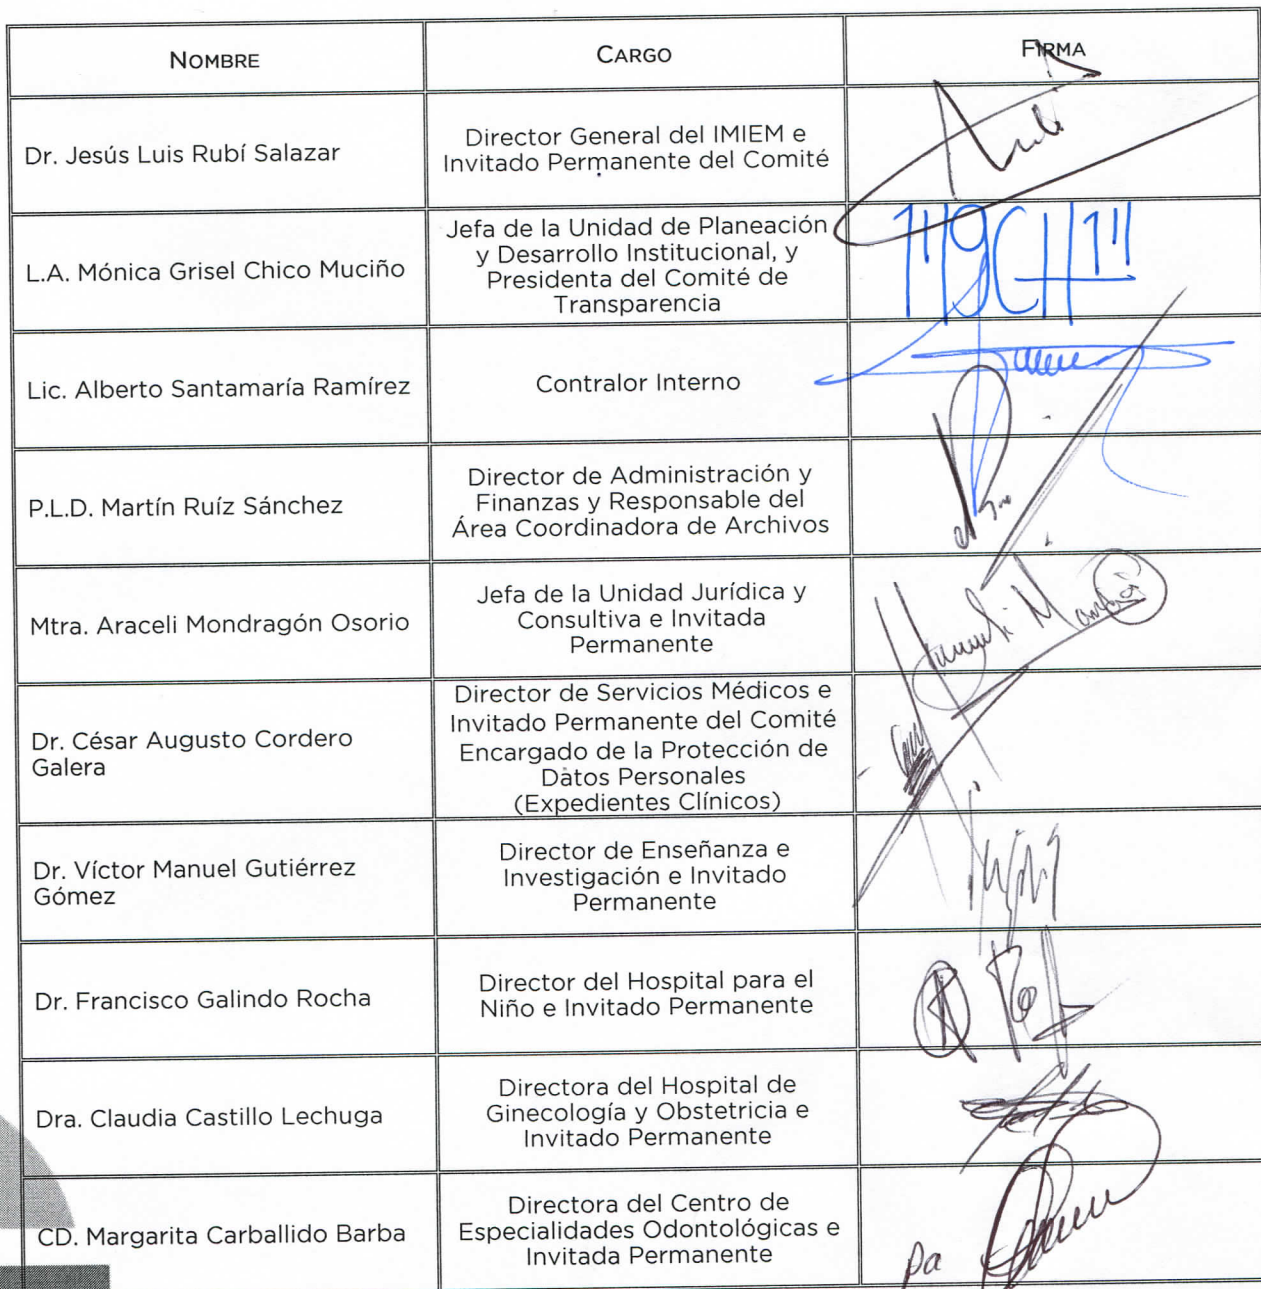 NOMBRE CARGO FIRMA
Dr. Jesús Luis Rubí Salazar
Director General del IMIEM e
Invitado Permanente del Comité
L.A. Mónica Grisel Chico Muciño
Jefa de la Unidad de Planeación
y Desarrollo Institucional, y
Presidenta del Comité de
Transparencia
Lic. Alberto Santamaría Ramírez
Contralor Interno
P.L.D. Martín Ruíz Sánchez
Director de Administración y
Finanzas y Responsable del
Área Coordinadora de Archivos
Mtra. Araceli Mondragón Osorio
Jefa de la Unidad Jurídica y
Consultiva e Invitada
Permanente
Dr. César Augusto Cordero
Galera
Director de Servicios Médicos e
Invitado Permanente del Comité
Encargado de la Protección de
Datos Personales
(Expedientes Clínicos)
Dr. Víctor Manuel Gutiérrez
Gómez
Director de Enseñanza e
Investigación e Invitado
Permanente
Dr. Francisco Galindo Rocha
Director del Hospital para el
Niño e Invitado Permanente
Dra. Claudia Castillo Lechuga
Directora del Hospital de
Ginecología y Obstetricia e
Invitado Permanente
CD. Margarita Carballido Barba
Directora del Centro de
Especialidades Odontológicas e
Invitada Permanente
pa